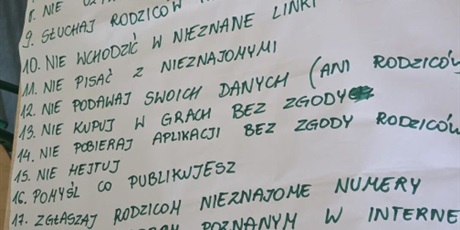 8. NIE
9. SŁUCHAJ RODZICÓW
10. NIE WCHODZIĆ W NIEZNANE LINKI
11. NIE PISAĆ Z NIEZNAJOMYMI
12. NIE PODAWAJ SWOICH DANYCH (ANI RODZICÓW
13. NIE KUPUJ W GRACH BEZ ZGODY
14. NIE POBIERAJ APLIKACJI BEZ ZGODY RODZICÓW
15. NIE HEJTUJ
16. POMYŚL CO PUBLIKUJESZ
17. ZGŁASZAJ RODZICOM NIEZNAJOME NUMERY
POZNANYM W INTERNE